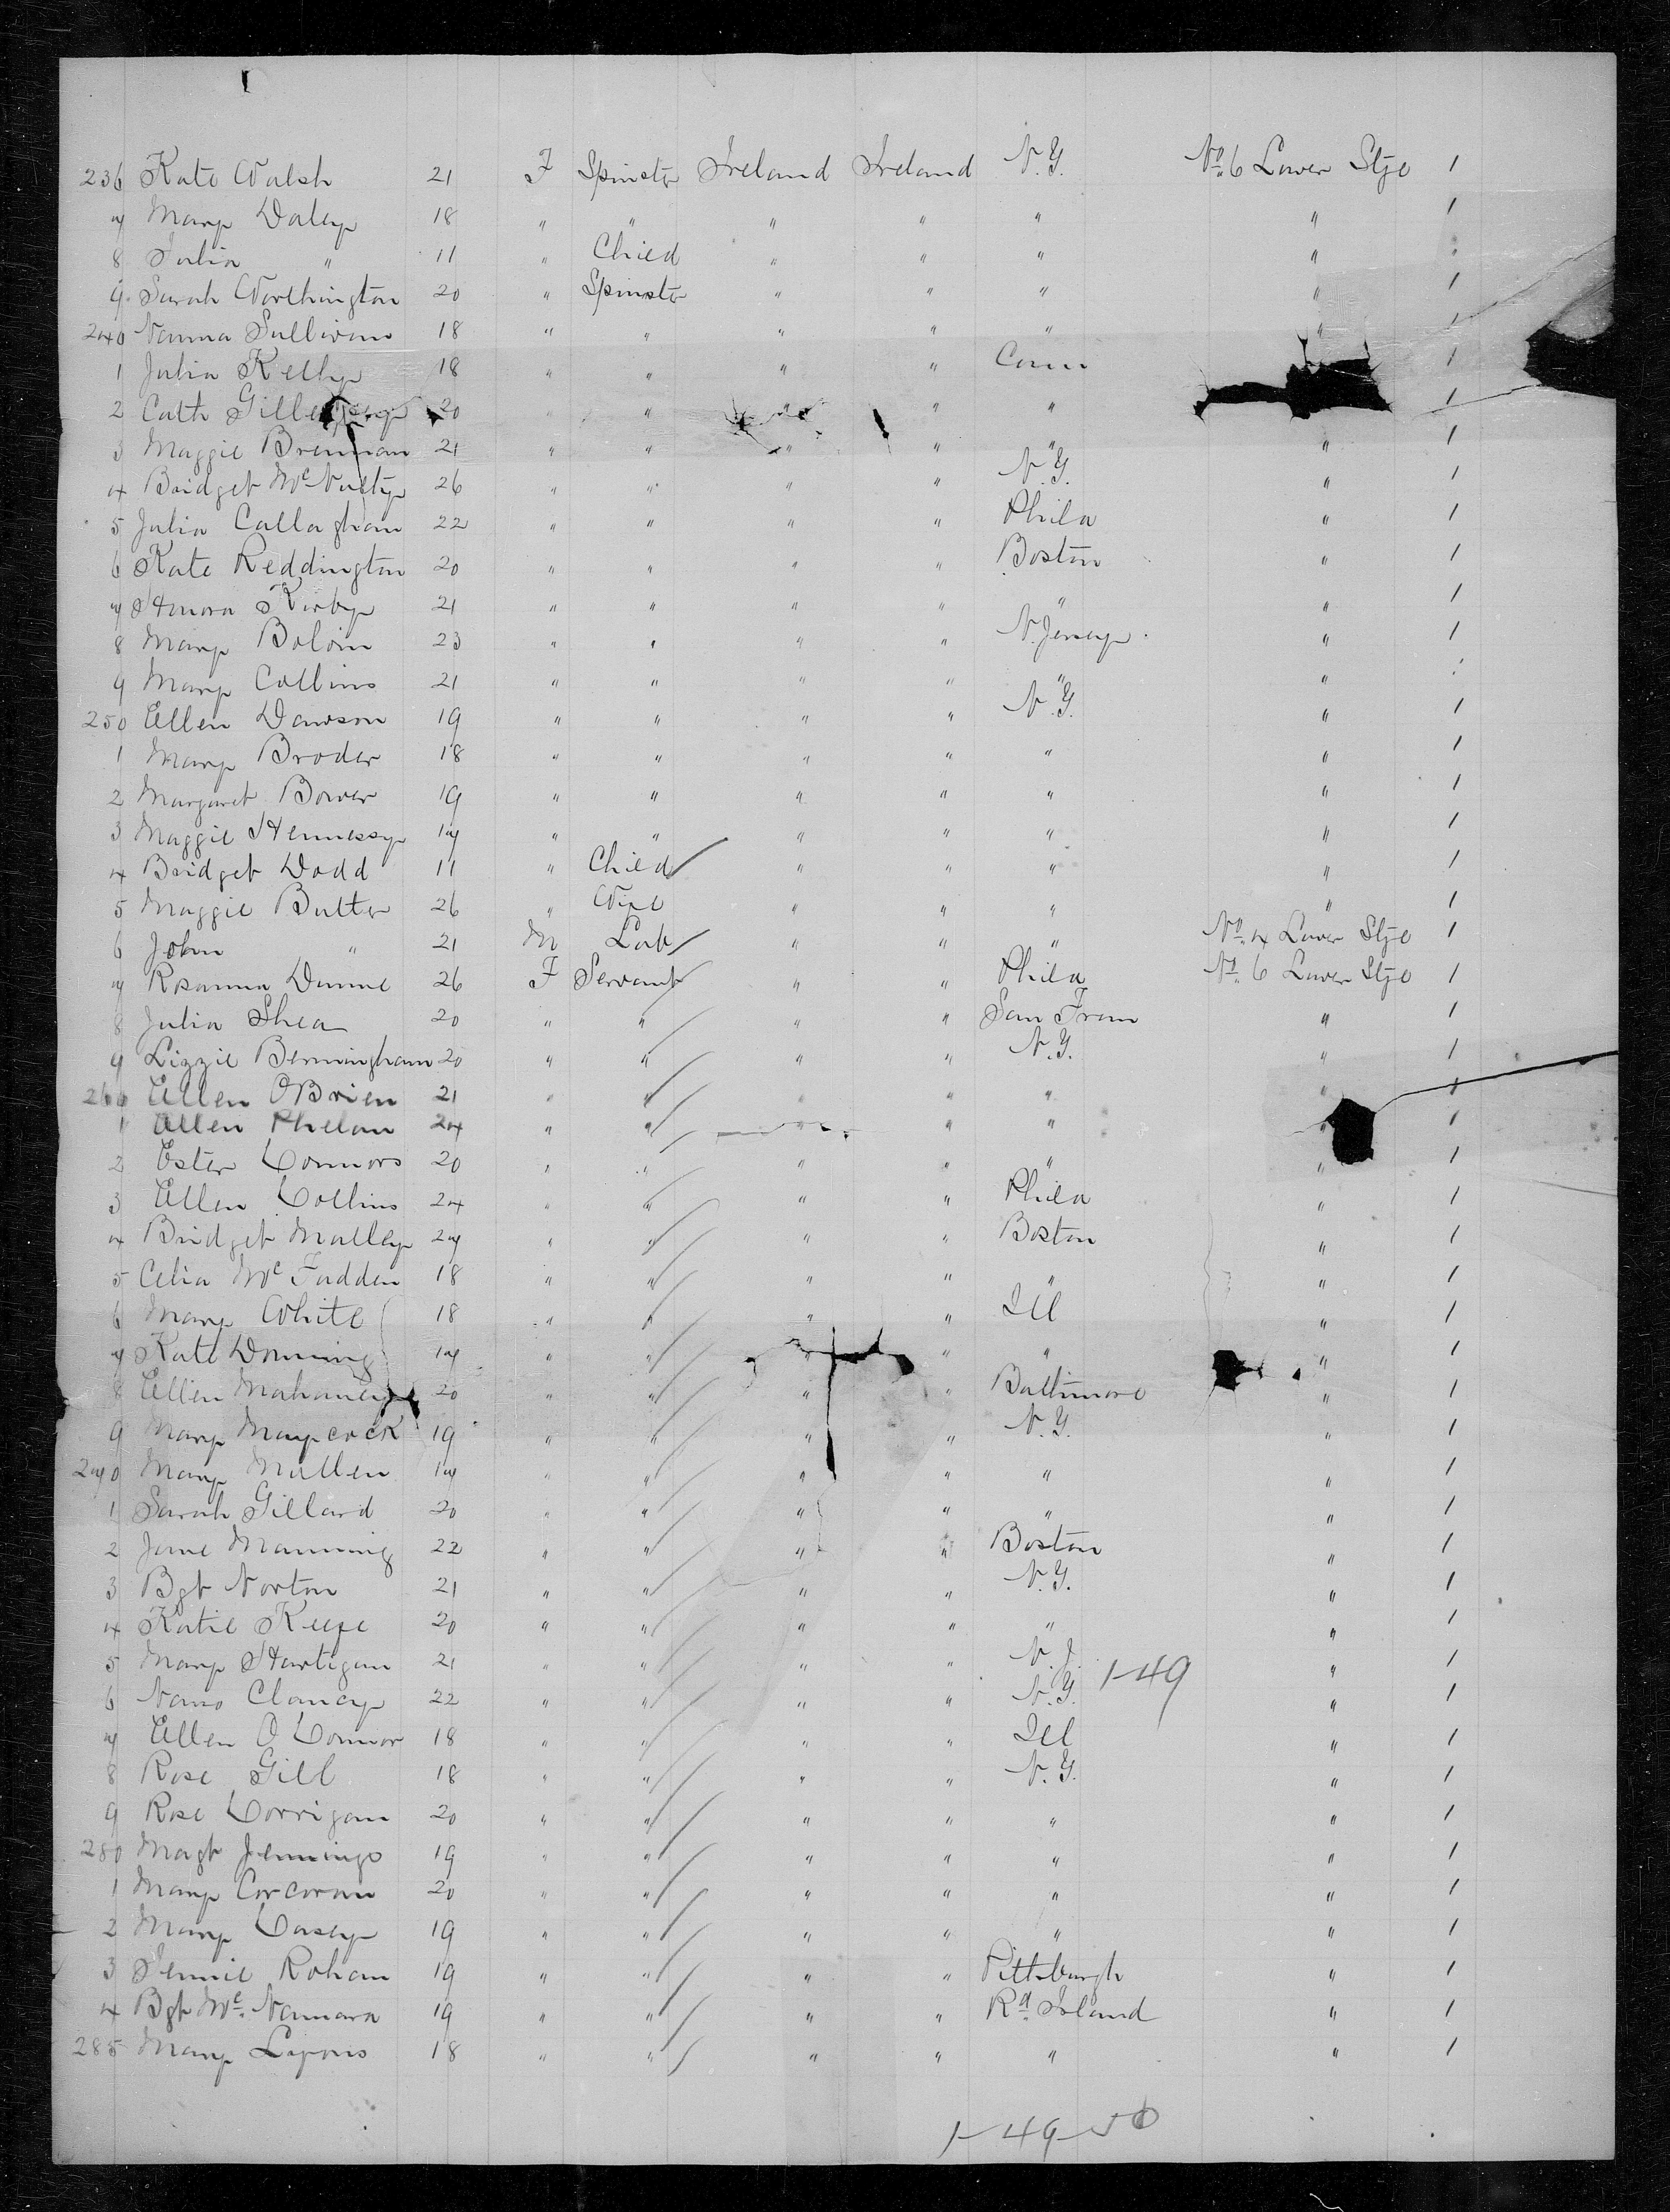 236 Kate Walsh 21 F Spinster Ireland Ireland N.Y. No. 6 Lower Stge 1
7 Mary Daley 18 " " " " " " 1
8 Julia " 11 " Child " " " "
9 Sarah Worthington 20 " Spinster " " " " 1
240 Nanna Sullivan 18 " " " " " " 1
1 Julia Kelly 18 " " " " Conn 1
2 Cath 20 " " " " " 1
3 Maggie Brennan 21 " " " " " " 1
4 Bridget McNulty 26 " " " " N.Y. " 1
5 Julia Callaghan 22 " " " " Phila " 1
6 Kate Reddington 20 " " " " Boston " 1
7 Honora Kirby 21 " " " " " " 1
8 Mary 23 " " " " N. Jersey " 1
9 Mary Collins 21 " " " " " "
250 Ellen Dawson 19 " " " " N.Y. " 1
1 Mary Broder 18 " " " " " " 1
2 Margaret Bower 19 " " " " " " 1
3 Maggie Hennessy 17 " " " " " " 1
4 Bridget Dodd 11 " Child " " " " 1
5 Maggie Butler 26 " Wife " " " " 1
6 John " 21 M Lab " " " No. 4 Lower Stge 1
7 Rosanna Dunne 26 F Servant " " Phila No. 6 Lower Stge 1
8 Julia Shea 20 " " " " San Fran " 1
9 Lizzie Bermingham 20 " " " " N.Y. " 1
260 Ellen OBrien 21 " " " " " " 1
1 Ellen Phelan 24 " " " " " " 1
2 Ester Connors 20 " " " " " " 1
3 Ellen Collins 24 " " " " Phila " 1
4 Bridget Malley 27 " " " " Boston " 1
5 Celia McFadden 18 " " " " " " 1
6 Mary White 18 " " " " Ill " 1
7 Kate Downing 17 " " " " " " 1
8 Ellen Mahaney 20 " " " " Baltimore " 1
9 Mary Maycock 19 " " " " N.Y. " 1
270 Mary Mullen 17 " " " " " " 1
1 Sarah Gillard 20 " " " " " " 1
2 Jane Manning 22 " " " " Boston " 1
3 Bgt Norton 21 " " " " N.Y. " 1
4 Katie Keefe 20 " " " " " " 1
5 Mary Hartigan 21 " " " " N.J. " 1
1-49
6 Nano Clancy 22 " " " " N.Y. " 1
7 Ellen O Connor 18 " " " " Ill " 1
8 Rose Gill 18 " " " " N.Y. " 1
9 Rose Corrigan 20 " " " " " " 1
280 Magt Jennings 19 " " " " " " 1
1 Mary Corcoran 20 " " " " " " 1
2 Mary Casey 19 " " " " " " 1
3 Jennie Rohan 19 " " " " Pittsburgh " 1
4 Bgt McNamara 19 " " " " Rd. Island " 1
285 Mary Lyons 18 " " " " " " 1
1-49-50